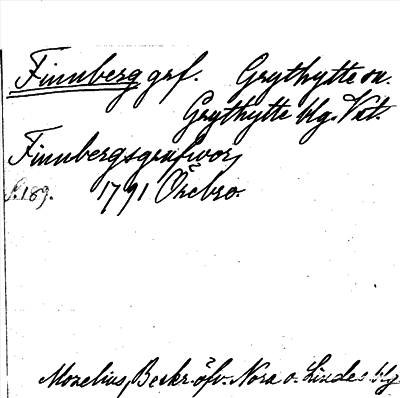 Finnberg grf. Grythytte sn.
Grythytte blg. Vstl.
Finnbergsgrufvor,
s. 189. 1791 Örebro.
Moxelius, Beskr. öfv. Nora o. Lindes blg.